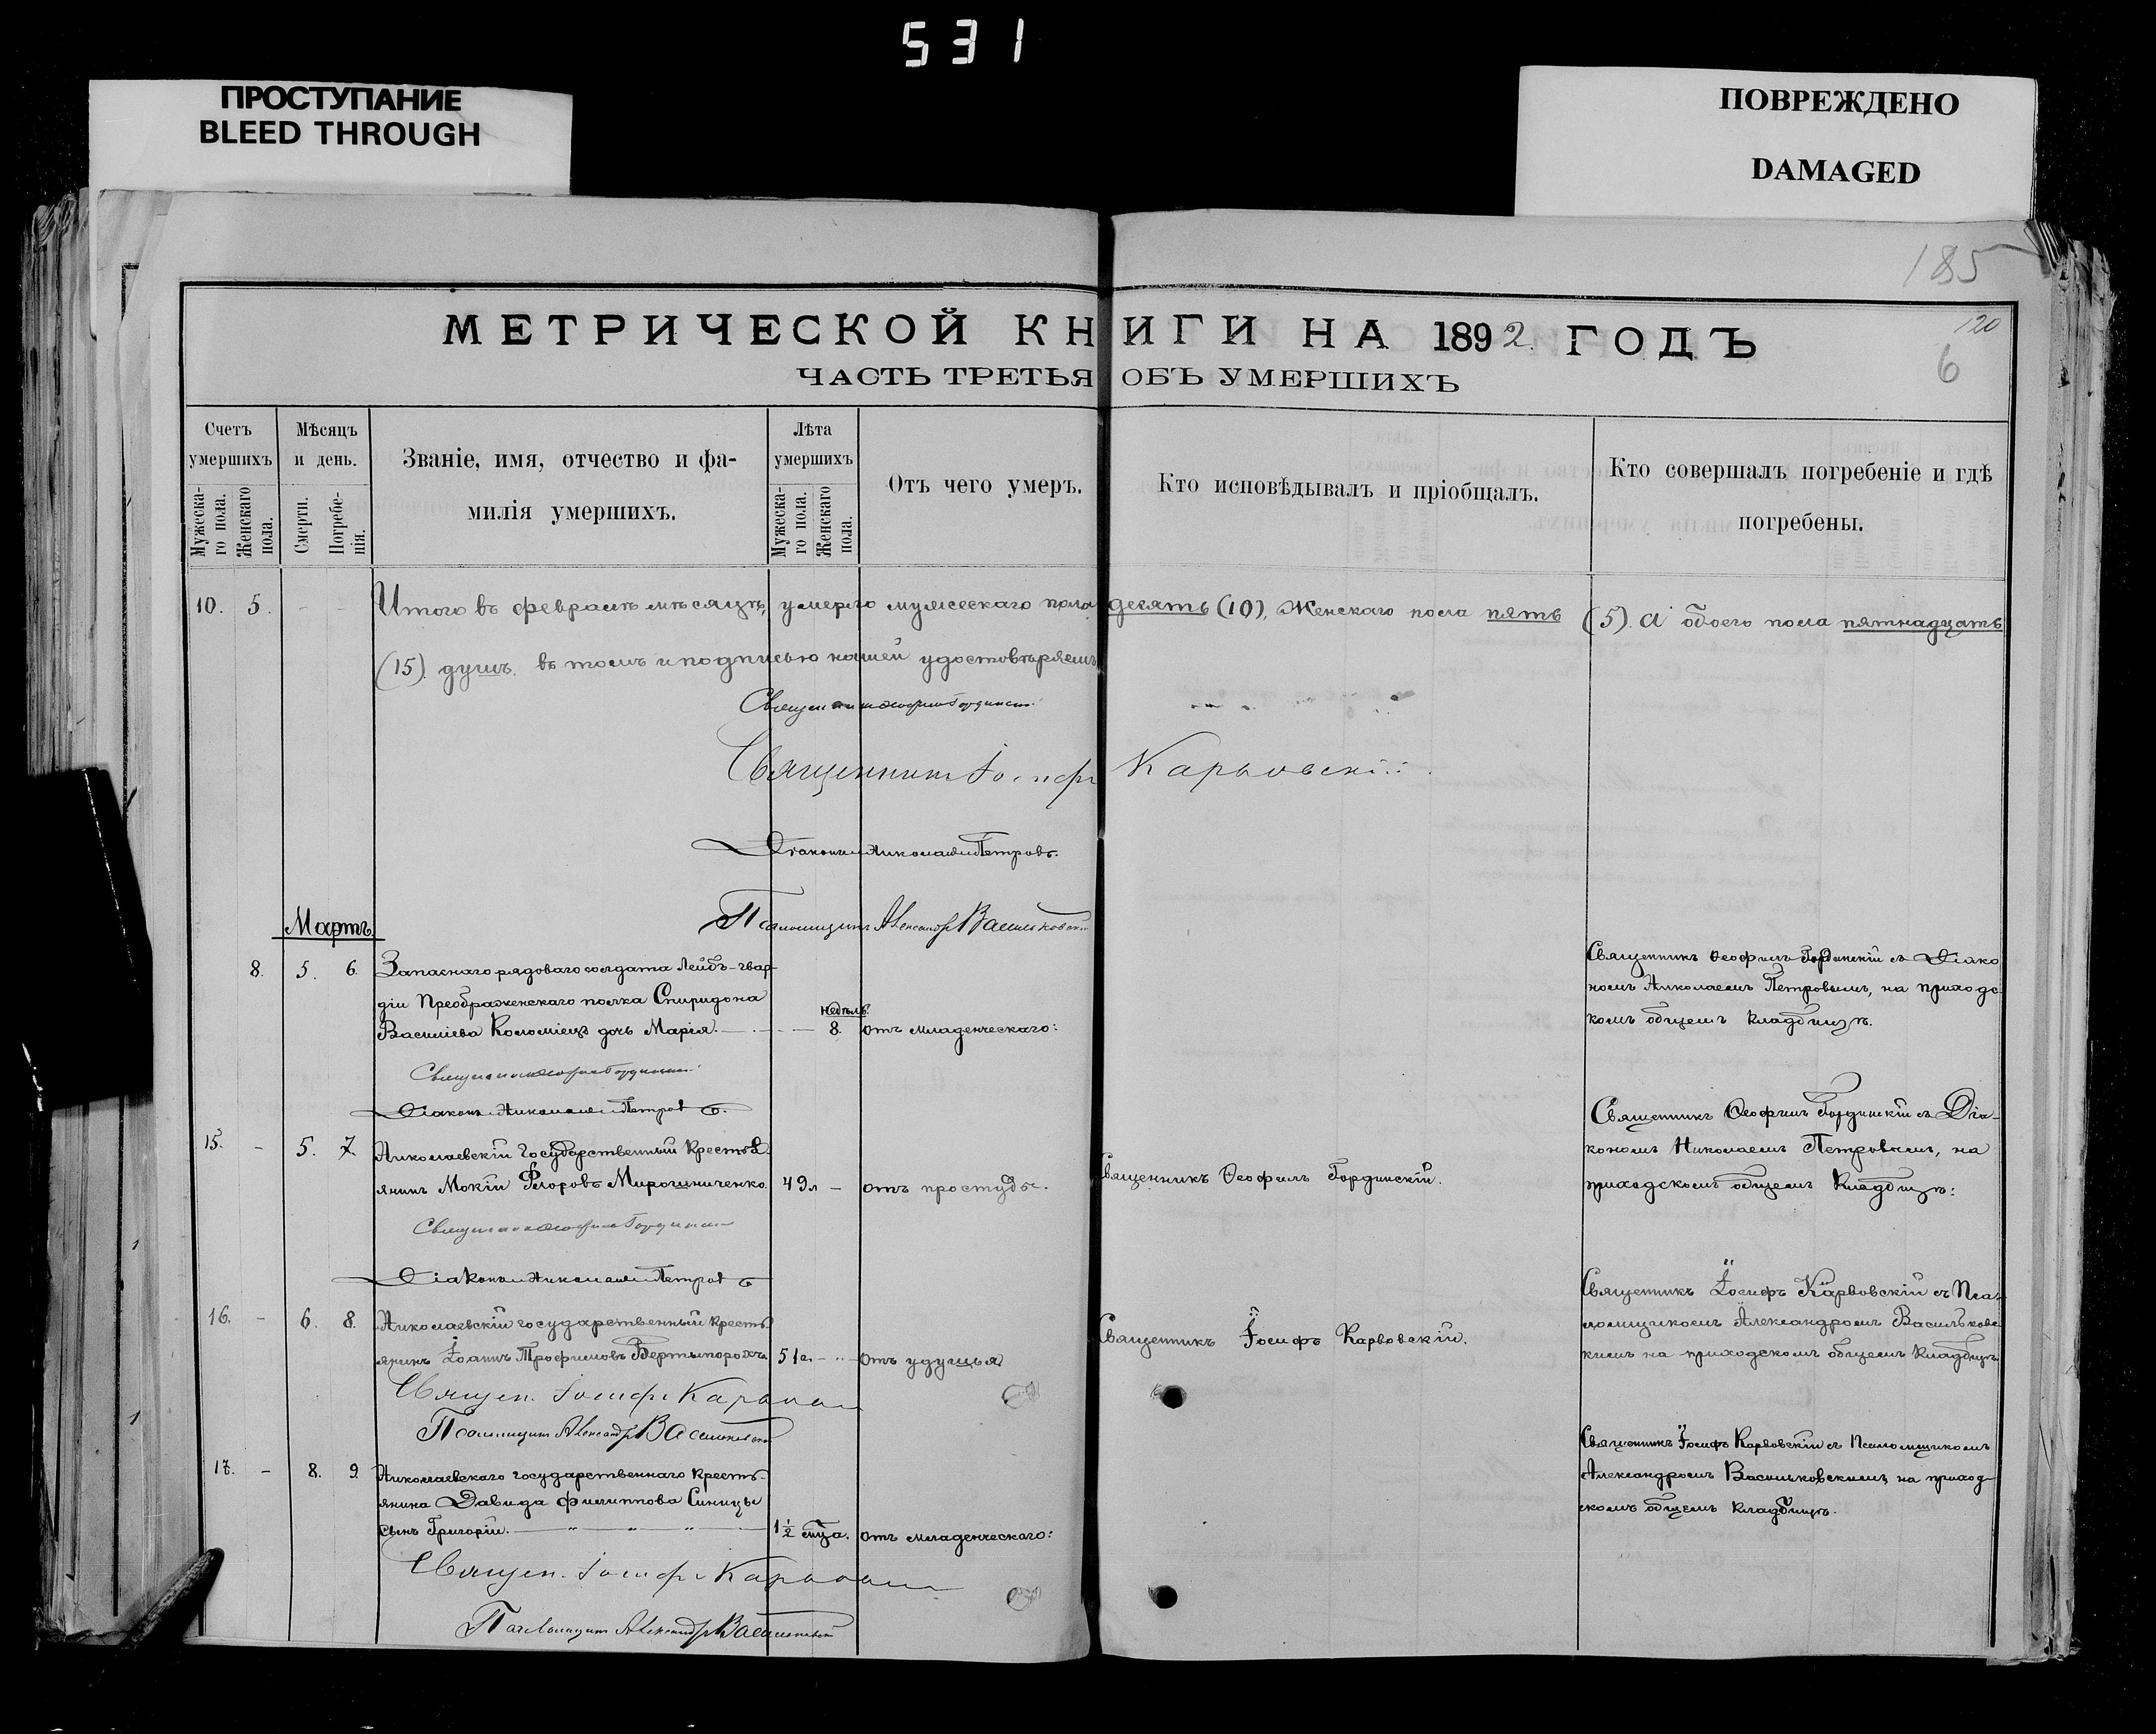 531
ПРОСТУПАНИЕ
BLEED THROUGH
ПОВРЕЖДЕНО
DAMAGED
185
120
6
МЕТРИЧЕСКОЙ КНИГИ НА 1892. ГОДЪ
ЧАСТЬ ТРЕТЬЯ ОБЪ УМЕРШИХЪ
Счетъ умершихъ
Мужескаго пола.
Женскаго пола.
Мѣсяцъ и день.
Смерти.
Погребенія.
Званіе, имя, отчество и фа-
милія умершихъ.
Лѣта умершихъ
Мужескаго пола.
Женскаго пола.
Отъ чего умеръ.
Кто исповѣдывалъ и пріобщалъ.
Кто совершалъ погребеніе и гдѣ
погребены.
10. 5. Итого въ февралѣ мѣсяцѣ, умерло мужескаго пола десять (10), Женскаго пола пять (5). а обоего пола пятнадцать
(15) душъ. въ томъ и подписью нашей удостовѣряемъ
Священникъ Ѳеофилъ Гординскій
Священникъ Іосифъ Карвовскій.
Діаконъ Николай Петровъ.
Псаломщикъ Александръ Васильковскій
Мартъ
8. 5. 6. Запаснаго рядоваго солдата Лейбъ-гвар-
діи Преображенскаго полка Спиридона
Василіева Коломіець дочь Марія.
недѣль
8. отъ младенческаго:
Священникъ Ѳеофилъ Гординскій с Діако
номъ Николаемъ Петровымъ, на приходс
комъ общемъ кладбищѣ.
Священникъ Ѳеофилъ Гординскій
Діаконъ Николай Петровъ.
15. - 5. 7. Николаевскій государственный кресть
янинъ Мокій Флоровъ Мирошниченко. 49 л - отъ простуды.
Священникъ Ѳеофилъ Гординскій.
Священникъ Ѳеофилъ Гординскій с Діа-
кономъ Николаемъ Петровымъ, на
приходскомъ общемъ кладбищѣ:
Священникъ Ѳеофилъ Гординскій
Діаконъ Николай Петровъ
16. - 6. 8. Николаевскій государственный кресть
янинъ Іоаннъ Трофимовъ Вертыпорохъ. 51 л. - отъ удушья
Священникъ Іосифъ Карвовскій.
Священникъ Іосифъ Карвовскій с Пса-
ломщикомъ Александромъ Васильковс
кимъ на приходскомъ общемъ кладбищѣ.
Священ. Іосифъ Карвовскій
Псаломщикъ Александръ Васильковскій
17. - 8. 9. Николаевскаго государственнаго кресть-
янина Давида Филиппова Синицы
сынъ Григорій. 1 1/2 мца. отъ младенческаго:
Священникъ Іосифъ Карвовскій с Псаломщикомъ
Александромъ Васильковскимъ на приход-
скомъ общемъ кладбищѣ.
Священ. Іосифъ Карвовскій
Псаломщикъ Александръ Васильковскій